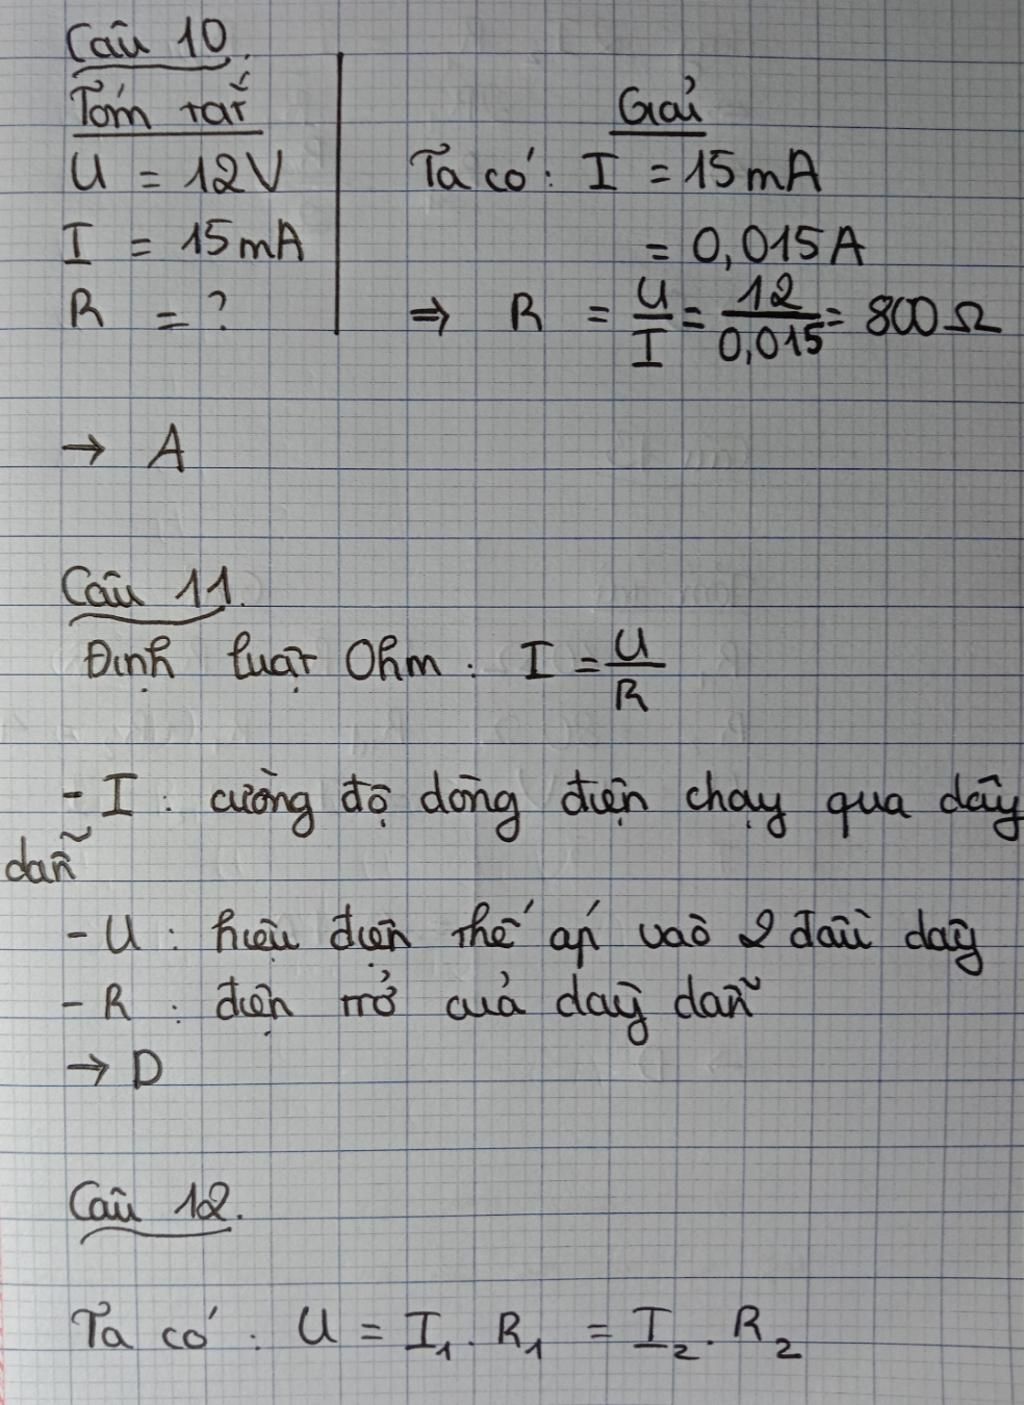 Câu 10.
Tóm tắt
U = 12V
I = 15mA
R = ?
Giải
Ta có: I = 15mA
= 0,015A
⇒ R = U/I = 12/0,015 = 800Ω
→ A
Câu 11.
Định luật Ohm: I = U/R
- I : cường độ dòng điện chạy qua dây
dẫn
- U : hiệu điện thế áp vào 2 đầu dây
- R : điện trở của dây dẫn
→ D
Câu 12.
Ta có: U = I₁. R₁ = I₂. R₂